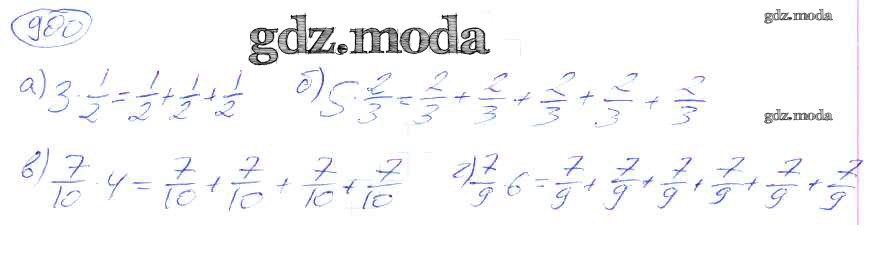 900
gdz.moda
gdz.moda
а) 3 · 1/2 = 1/2 + 1/2 + 1/2 б) 5 · 2/3 = 2/3 + 2/3 + 2/3 + 2/3 + 2/3
gdz.moda
в) 7/10 · 4 = 7/10 + 7/10 + 7/10 + 7/10 г) 7/9 · 6 = 7/9 + 7/9 + 7/9 + 7/9 + 7/9 + 7/9